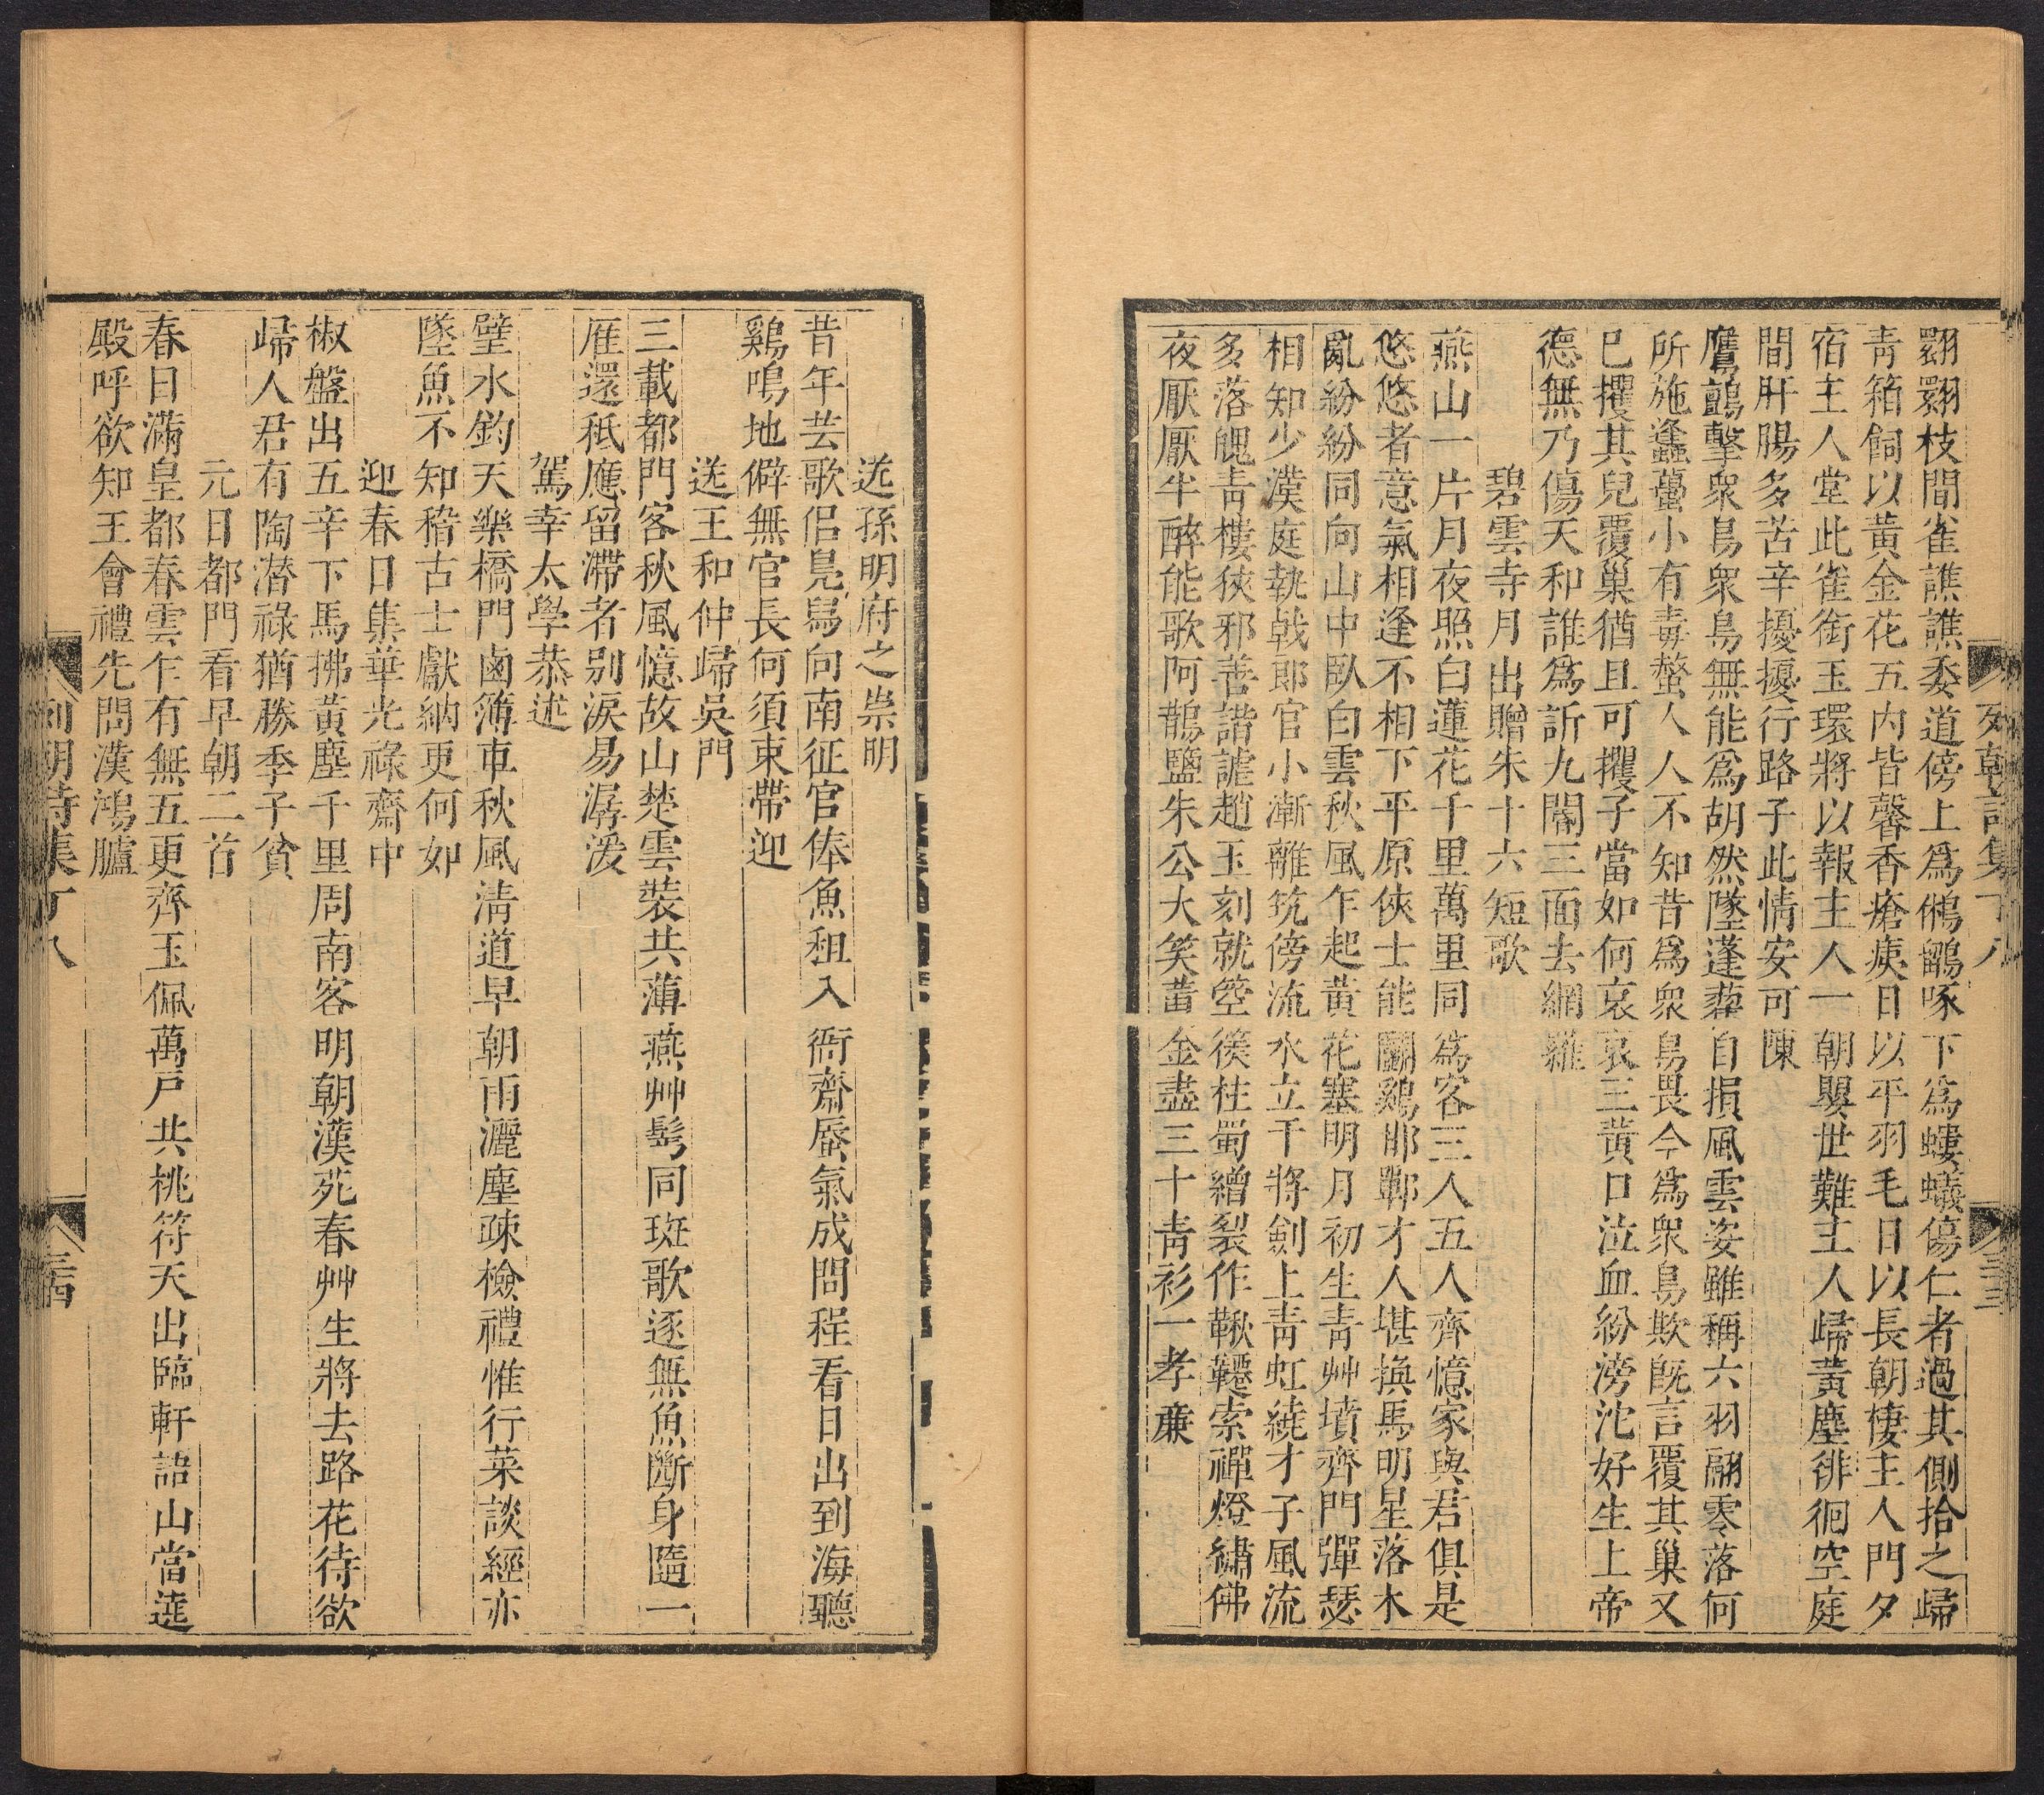 翾翾枝間雀譙譙委道傍上爲鵂鶹啄下爲螻蟻傷仁者過其側拾之歸
靑箱飼以黃金花五內皆馨香瘡痍日以平羽毛日以長朝棲主人門夕
宿主人堂此雀銜玉環將以報主人一朝嬰世難主人歸黃塵徘徊空庭
間肝腸多苦辛擾擾行路子此情安可陳
鷹鸇擊衆鳥衆鳥無能爲胡然墜蓬藋自損風雲姿雖稱六羽翮零落何
所施蠭蠆小有毒螫人人不知昔爲衆鳥畏今爲衆鳥欺旣言覆其巢又
已攫其兒覆巢猶且可攫子當如何哀哀三黃口泣血紛滂沱好生上帝
德無乃傷天和誰爲訢九閽三面去網羅
碧雲寺月出贈朱十六短歌
燕山一片月夜照白蓮花千里萬里同爲客三人五人齊憶家與君俱是
悠悠者意氣相逢不相下平原俠士能鬭鷄邯鄲才人堪換馬明星落木
亂紛紛同向山中臥白雲秋風乍起黃花塞明月初生靑艸墳齊門彈瑟
相知少漢庭執戟郎官小漸離筑傍流水立干將劍上靑虹繞才子風流
多落魄靑樓狹邪善諧謔趙玉刻就箜篌柱蜀繒裂作鞦韆索禪燈繡佛
夜厭厭半醉能歌阿鵲鹽朱公大笑蓄金盡三十靑衫一孝廉
列朝詩集丁八
三三
送孫明府之崇明
昔年芸歌侶鳧舄向南征官俸魚租入衙齋蜃氣成問程看日出到海聽
鷄鳴地僻無官長何須束帶迎
送王和仲歸吳門
三載都門客秋風憶故山楚雲裝共薄燕艸髩同斑歌逐無魚斷身隨一
雁還秪應留滯者別淚易潺湲
駕幸太學恭述
璧水鈞天樂橋門鹵簿車秋風淸道早朝雨灑塵疎檢禮惟行菜談經亦
墜魚不知稽古士獻納更何如
迎春日集華光祿齋中
椒盤出五辛下馬拂黃塵千里周南客明朝漢苑春艸生將去路花待欲
歸人君有陶潛祿猶勝季子貧
元日都門看早朝二首
春日滿皇都春雲乍有無五更齊玉佩萬戶共桃符天出臨軒語山當遶
殿呼欲知王會禮先問漢鴻臚
列朝詩集丁八
三四